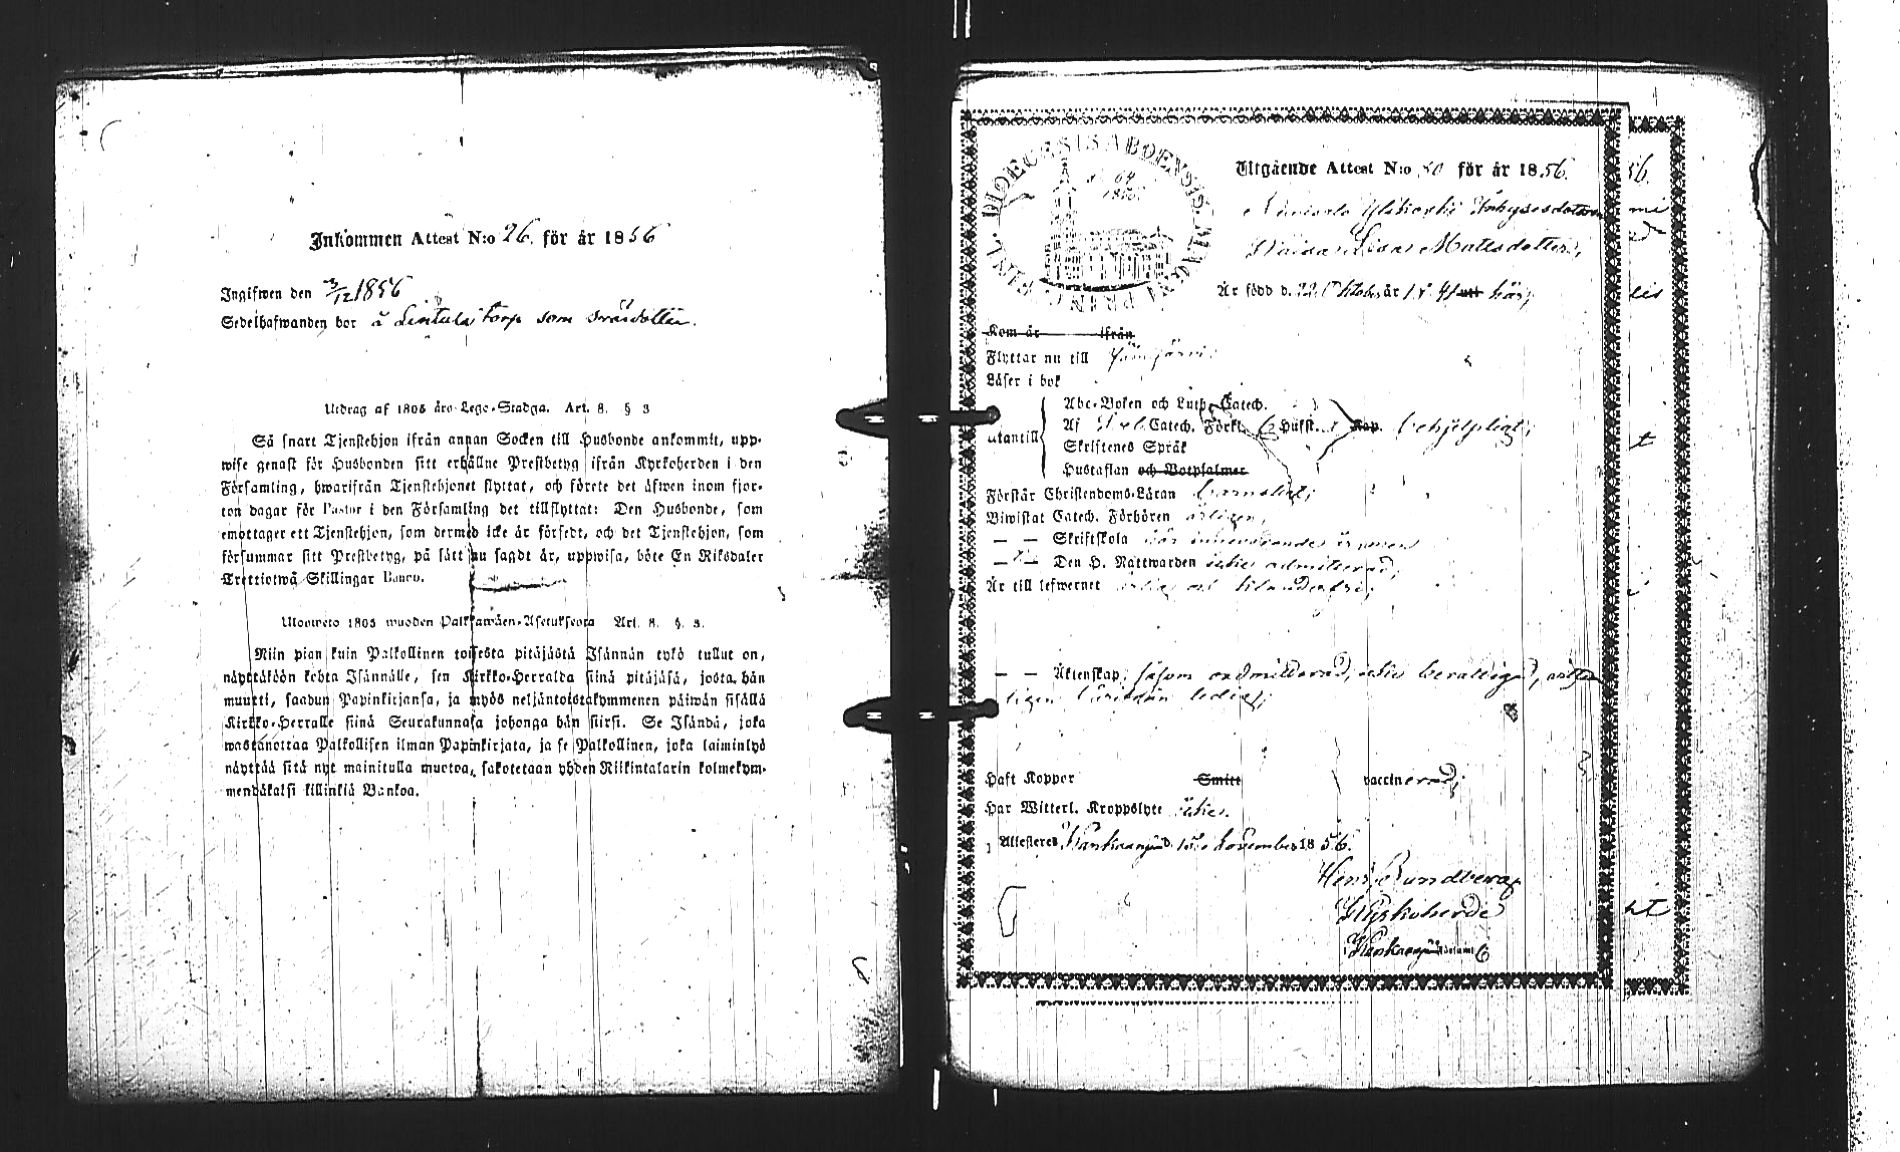 Inkommen Attest N:o 26. för år 1856
Ingifwen den 3/12 1856
Sedelhafwanden bor å Lintula torp som svärdotter.
Utdrag af 1805 års Lego-Stadga. Art. 8. § 3
Så snart Tjenstehjon ifrån annan Socken till Husbonde ankommit, upp-
wise genast för Husbonden sitt erhållne Prestbetyg ifrån Kyrkoherden i den
Församling, hwarifrån Tjenstehjonet flyttat, och förete det äfwen inom fjor-
ton dagar för Pastor i den Församling det tillflyttat: Den Husbonde, som
emottager ett Tjenstehjon, som dermed icke är försedt, och det Tjenstehjon, som
försummar sitt Prestbetyg, på sätt nu sagdt är, uppwisa, böte En Riksdaler
Trettiotwå Skillingar Banco.
Ulosweto 1805 wuoden Palkkawäen-Asetuksesta Art. 8. §. 3.
Niin pian kuin Palkollinen toisesta pitäjästä Isännän tykö tullut on,
näyttäköön kohta Isännälle, sen Kirkko-Herralda siinä pitäjäsä, josta hän
muutti, saadun Papinkirjansa, ja myös neljäntoistakymmenen päiwän sisällä
Kirkko-Herralle siinä Seurakunnasa johonga hän siirsi. Se Isändä, joka
wastanottaa Palkollisen ilman Papinkirjata, ja se Palkollinen, joka laiminlyö
näyttää sitä nyt mainitulla muotoa, sakotetaan yhden Riikintalarin kolmekym-
mendäkaksi killinkiä Bankoa.
DIOECESIS ABOENSIS. MAGNI PRINC. FINL.
64
1856.
Utgående Attest N:o 80 för år 1856.
Ylikoski Inhysesdottern
Lisa Mattsdotter,
Är född d. 22 Oktober år 1841 här;
Kom år ifrån
Flyttar nu till Jämijärvi.
Läser i bok
utantill
Abc-Boken och Luth. Catech.
Af Catech. Förkl. Husst. Kap. behjelpligt;
Skriftenes Språk
Hustaflan och Botpsalmer
Förstår Christendoms-Läran barnsligt;
Biwistat Catech. Förhören årligen,
— — Skriftskola
— — Den H. Nattwarden icke admitterad;
Är till lefwernet ärlig och klanderfri;
— — Äktenskap; såsom oadmitterad, icke berättigad,
ledig;
Haft Koppor Smitt vaccinerad;
Har Witterl. Kroppslyte icke.
Attesteras Kankaanpää d. 15 November 1856.
Henr. Rundberg
Kyrkoherde
Kankaanpää